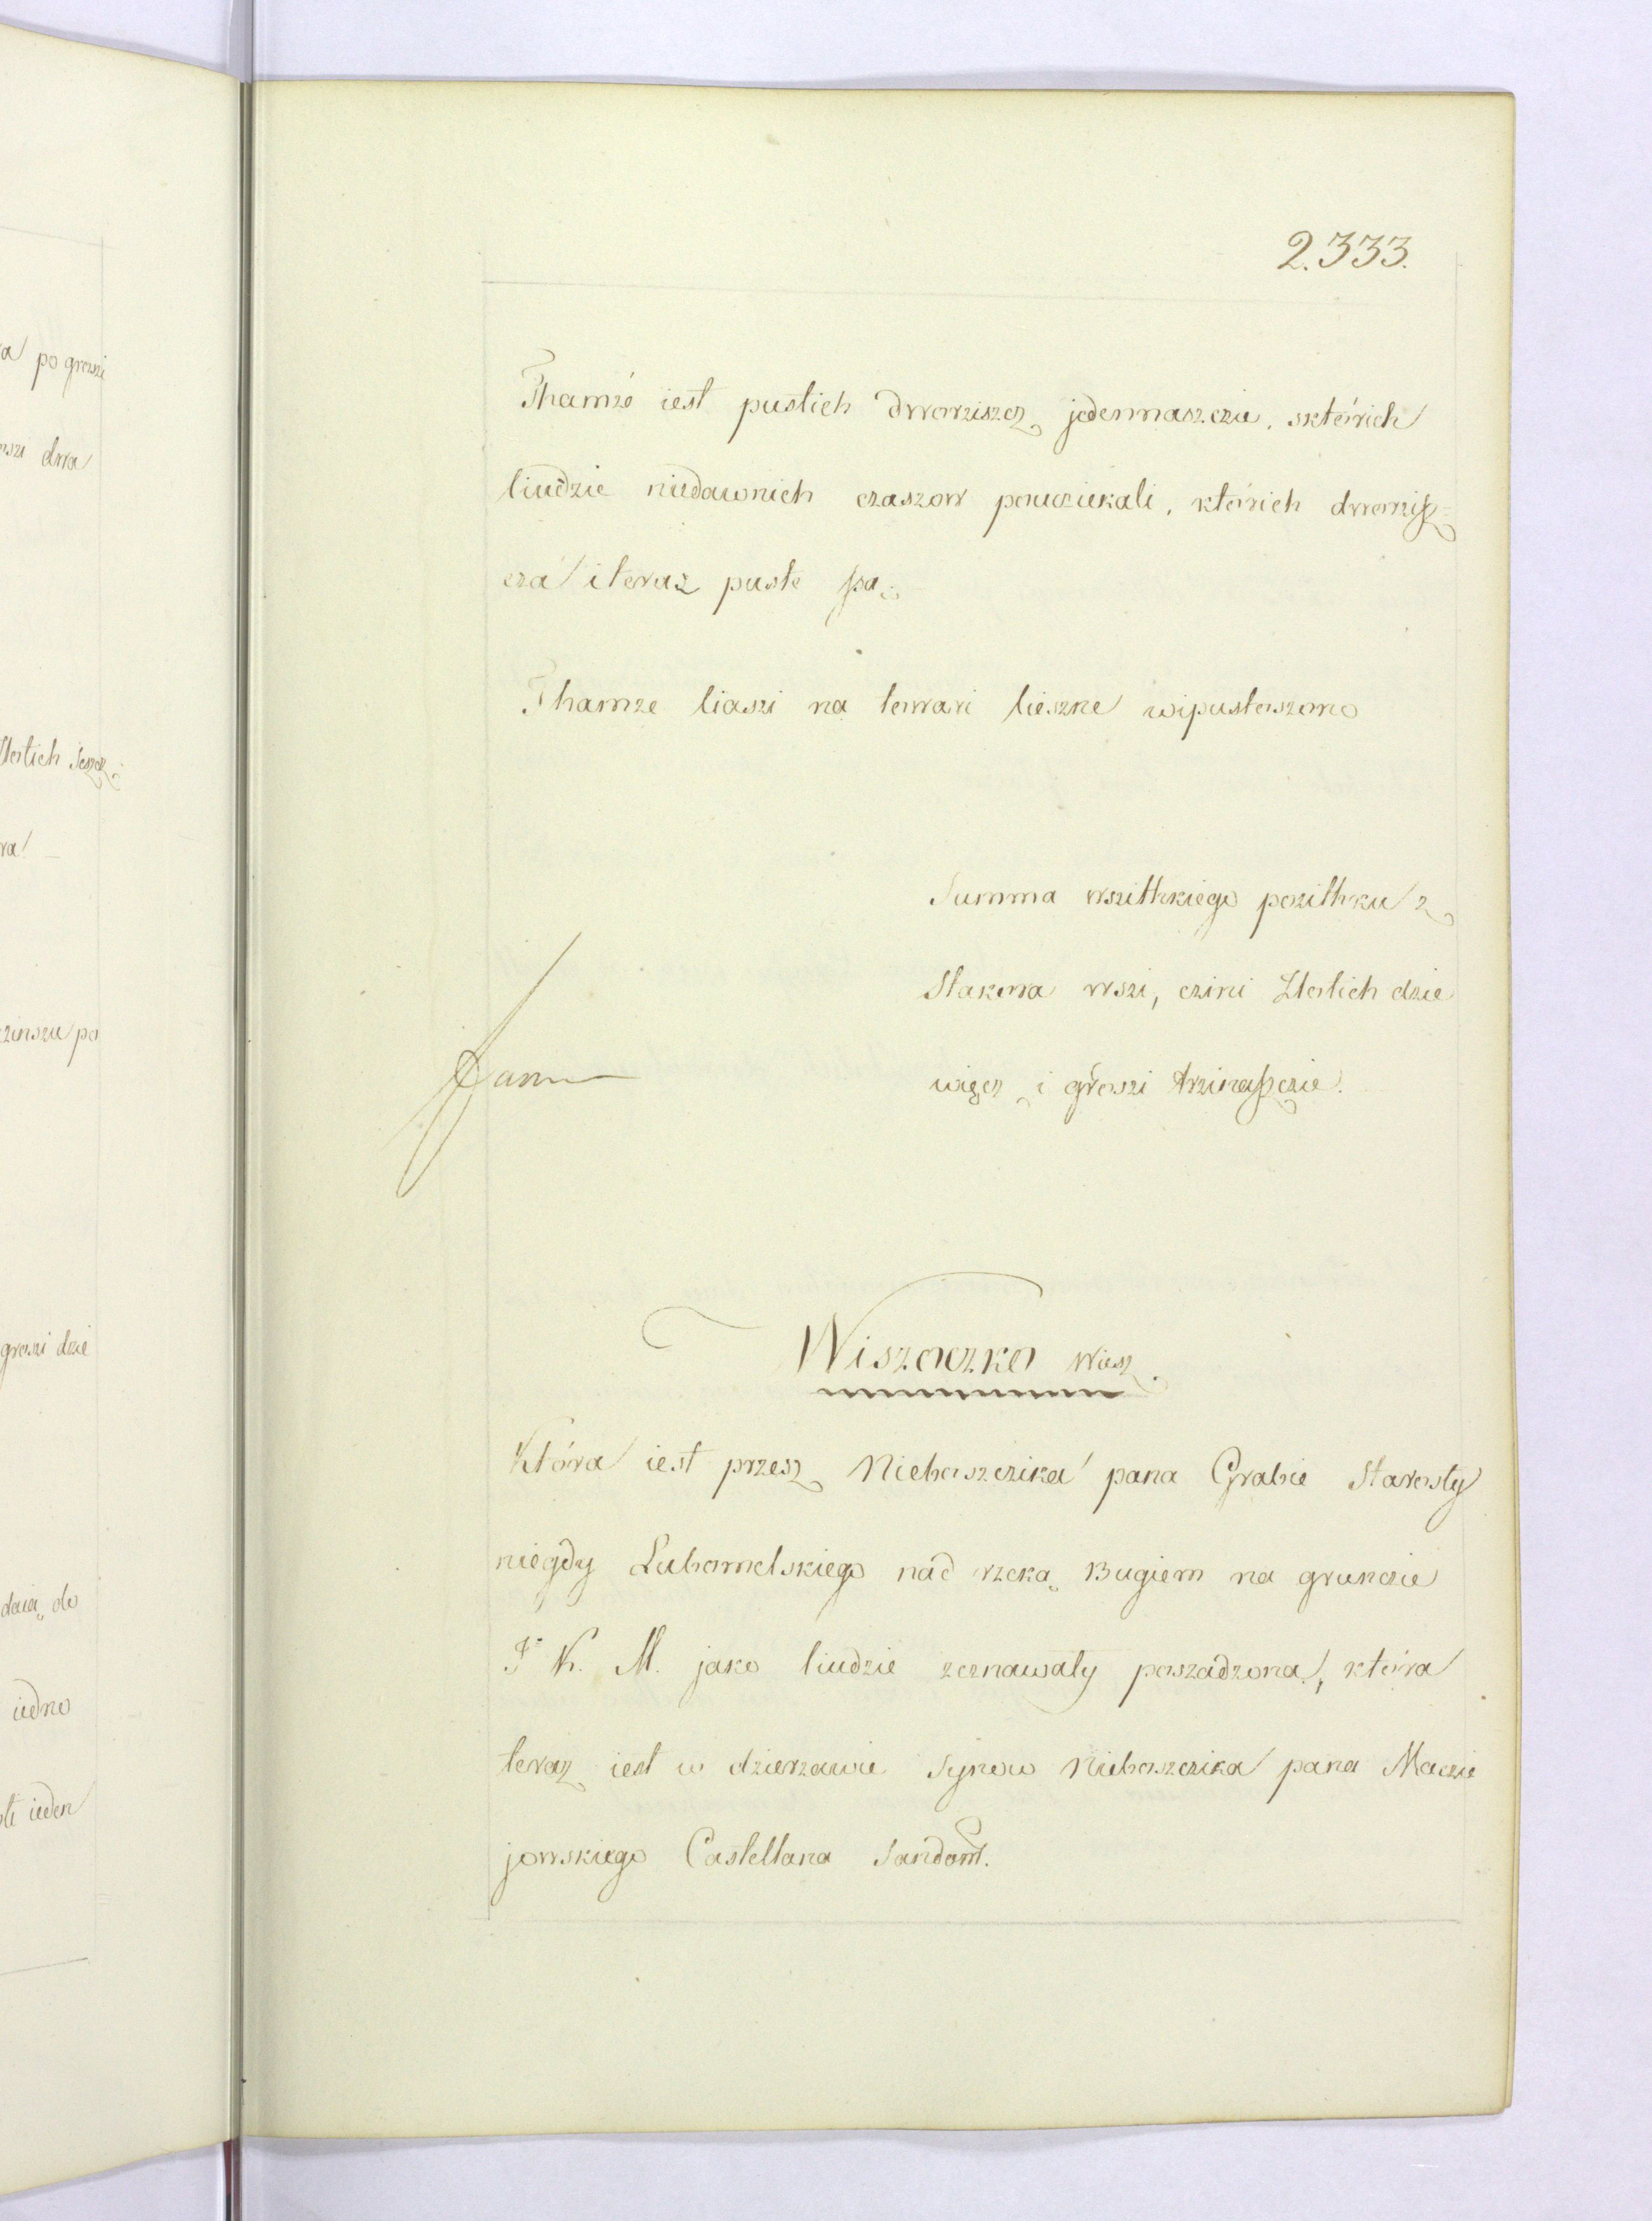 2.333.
Thamże iest pustich dworziszcz jedennaszczie, sktórich
liudzie niedawnich czaszow pouciekali, których dworzisz=
cza i teraz puste sza.
Thamze liaszi na towari lieszne wipustoszono
Summa wszithkiego pozithku z
Stakowa wszi, czini Zlotich dzie
więcz i groszi trzinaszczie.
Wiszoczko wiesz.
Która iest przesz Nieboszczika pana Grabie Starosty
niegdy Lubomelskiego nad rzeką Bugiem na grunczie
J. K. M. jako liudzie zeznawały poszadzona, która
teraz iest w dzierzawie Synow Nieboszczika pana Maczie
jowskiego Castellana Sandom.
a po groszi
oszi dwa
Zlotich
zinszu po
groszi dzie
daią do
iedno
ieden